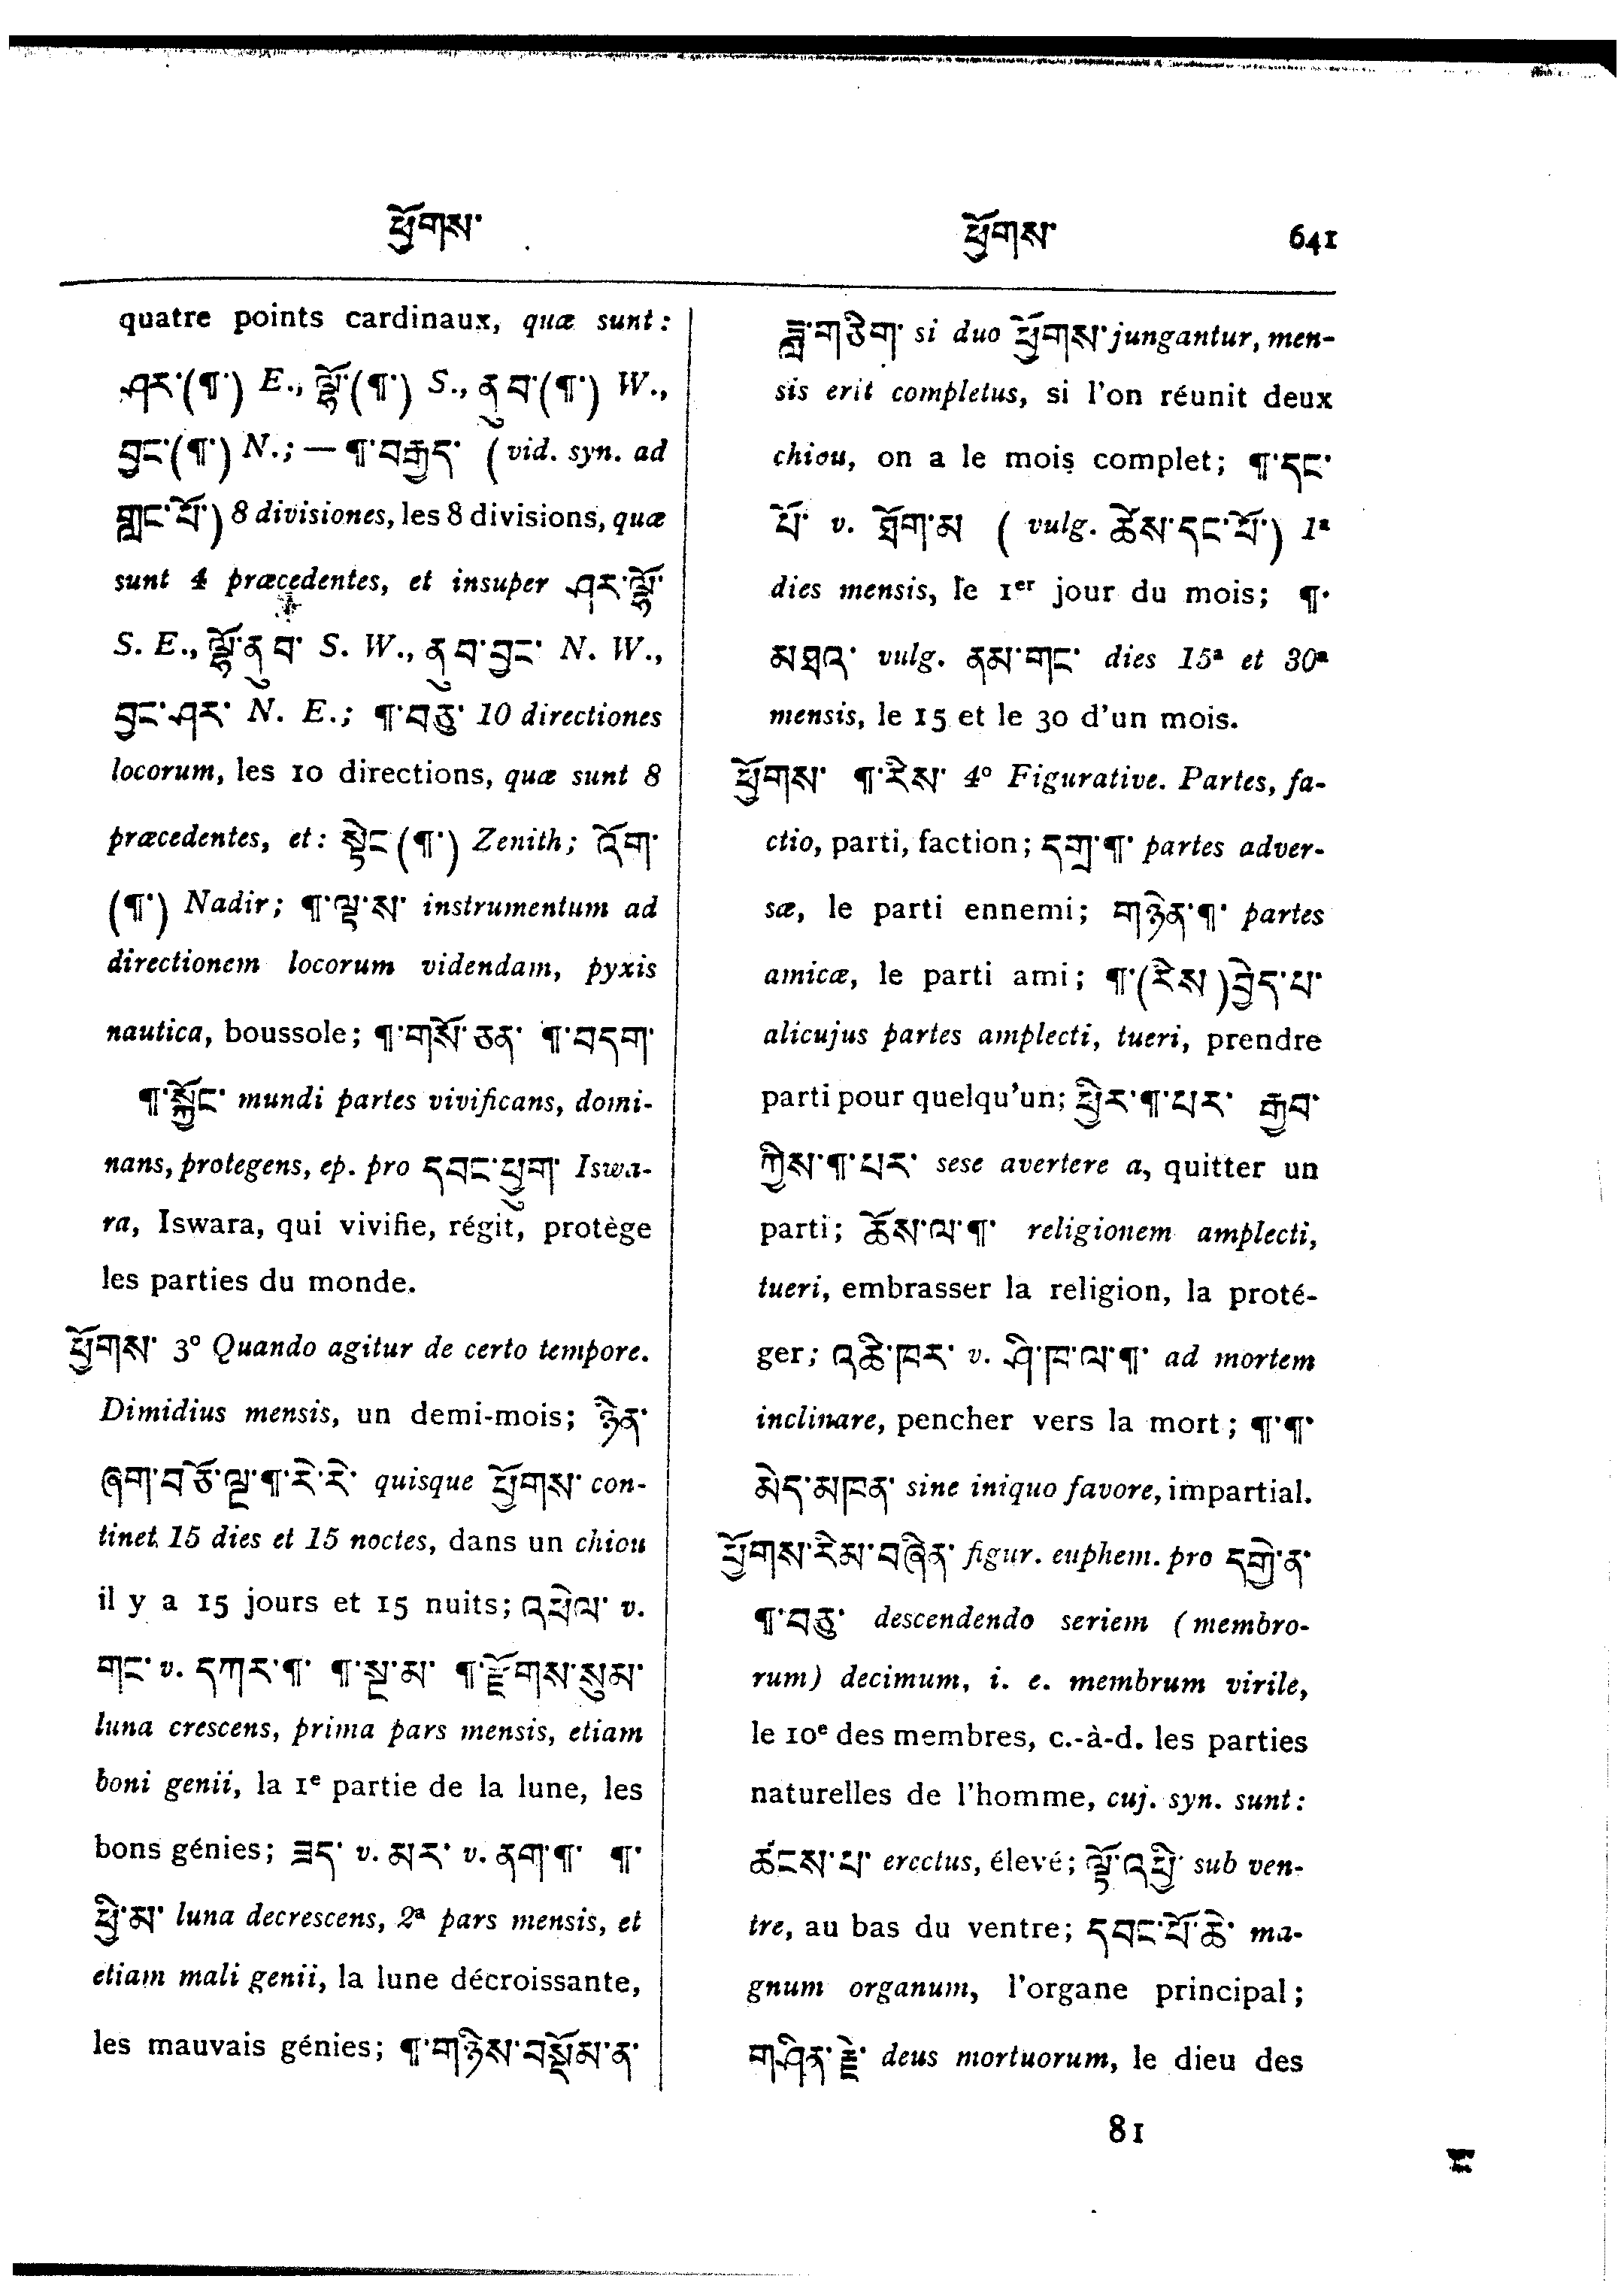 ཕྱོགས་
ཕྱོགས་ 641
quatre points cardinaux, quæ sunt:
ཤར་(¶་) E., ལྷོ་(¶་) S., ནུབ་(¶་) W.,
བྱང་(¶་) N.; — ¶་བརྒྱད་ (vid. syn. ad
གླང་པོ་) 8 divisiones, les 8 divisions, quæ
sunt 4 præcedentes, et insuper ཤར་ལྷོ་
S. E., ལྷོ་ནུབ་ S. W., ནུབ་བྱང་ N. W.,
བྱང་ཤར་ N. E.; ¶་བཅུ་ 10 directiones
locorum, les 10 directions, quæ sunt 8
præcedentes, et: སྟེང(¶་) Zenith; འོག་
(¶་) Nadir; ¶་ལྟ་ས་ instrumentum ad
directionem locorum videndam, pyxis
nautica, boussole; ¶་གསོ་ཅན་ ¶་བདག་
¶་སྐྱོང་ mundi partes vivificans, domi-
nans, protegens, ep. pro དབང་ཕྱུག་ Iswa-
ra, Iswara, qui vivifie, régit, protège
les parties du monde.
ཕྱོགས་ 3º Quando agitur de certo tempore.
Dimidius mensis, un demi-mois; ཉིན་
ཞག་བཅོ་ལྔ་¶་རེ་རེ་ quisque ཕྱོགས་ con-
tinet 15 dies et 15 noctes, dans un chiou
il y a 15 jours et 15 nuits; འཕེལ་ v.
གང་ v. དཀར་¶་ ¶་སྔ་མ་ ¶་རྫོགས་སུམ་
luna crescens, prima pars mensis, etiam
boni genii, la 1ᵉ partie de la lune, les
bons génies; ཟད་ v. མར་ v. ནག་¶་ ¶་
ཕྱི་མ་ luna decrescens, 2ª pars mensis, et
etiam mali genii, la lune décroissante,
les mauvais génies; ¶་གཉིས་བསྡོམ་ན་
ཟླ་གཅིག་ si duo ཕྱོགས་ jungantur, men-
sis erit completus, si l'on réunit deux
chiou, on a le mois complet; ¶་དང་
པོ་ v. ཐོག་མ (vulg. ཚེས་དང་པོ་) 1ª
dies mensis, le 1ᵉʳ jour du mois; ¶་
མཐའ་ vulg. ནམ་གང་ dies 15ª et 30ª
mensis, le 15 et le 30 d'un mois.
ཕྱོགས་ ¶་རིས་ 4º Figurative. Partes, fa-
ctio, parti, faction; དགྲ་¶་ partes adver-
sæ, le parti ennemi; གཉེན་¶་ partes
amicæ, le parti ami; ¶་(རིས)བྱེད་པ་
alicujus partes amplecti, tueri, prendre
parti pour quelqu'un; ཕྱིར་¶་པར་ རྒྱབ་
ཀྱིས་¶་པར་ sese avertere a, quitter un
parti; ཆོས་ལ་¶་ religionem amplecti,
tueri, embrasser la religion, la proté-
ger; འཆི་ཁར་ v. ཤི་ཁ་ལ་¶་ ad mortem
inclinare, pencher vers la mort; ¶་¶་
མེད་མཁན་ sine iniquo favore, impartial.
ཕྱོགས་རིམ་བཞིན་ figur. euphem. pro དགྱེ་ན་
¶་བཅུ་ descendendo seriem (membro-
rum) decimum, i. e. membrum virile,
le 10ᵉ des membres, c.-à-d. les parties
naturelles de l'homme, cuj. syn. sunt:
ཚངས་པ་ erectus, élevé; ལྟོ་འཕྱི་ sub ven-
tre, au bas du ventre; དབང་པོ་ཆེ་ ma-
gnum organum, l'organe principal;
གཤིན་རྗེ་ deus mortuorum, le dieu des
81